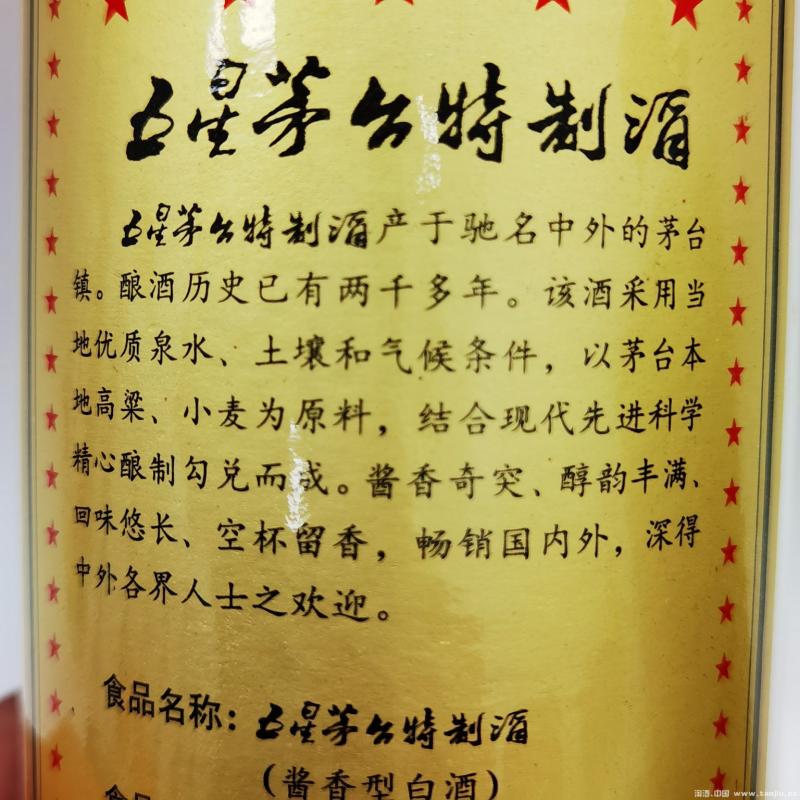 五星茅台特制酒
五星茅台特制酒产于驰名中外的茅台
镇。酿酒历史已有两千多年。该酒采用当
地优质泉水、土壤和气候条件，以茅台本
地高粱、小麦为原料，结合现代先进科学
精心酿制勾兑而成。酱香奇突、醇韵丰满、
回味悠长、空杯留香，畅销国内外，深得
中外各界人士之欢迎。
食品名称：五星茅台特制酒
（酱香型白酒）
食品